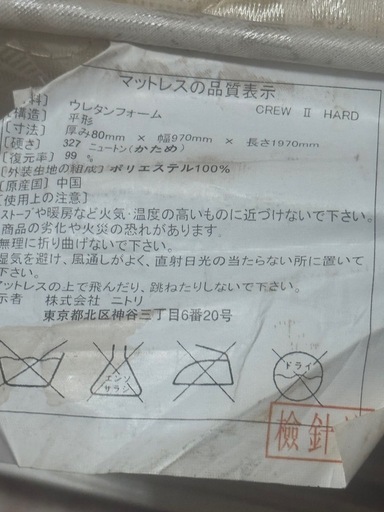 マットレスの品質表示
料] ウレタンフォーム CREW Ⅱ HARD
構造] 平形
[寸法] 厚み80mm × 幅970mm × 長さ1970mm
[硬さ] 327 ニュートン(かため)
[復元率] 99 %
[外装生地の組成] ポリエステル100%
[原産国] 中国
[使用上の注意]
ストーブや暖房など火気・温度の高いものに近づけないで下さい。
商品の劣化や火災の恐れがあります.
無理に折り曲げないで下さい。
湿気を避け、風通しがよく、直射日光の当たらない所に置いて
下さい。
マットレスの上で飛んだり、跳ねたりしないで下さい。
示者 株式会社 ニトリ
東京都北区神谷三丁目6番20号
エンソ
サラシ
ドライ
檢針